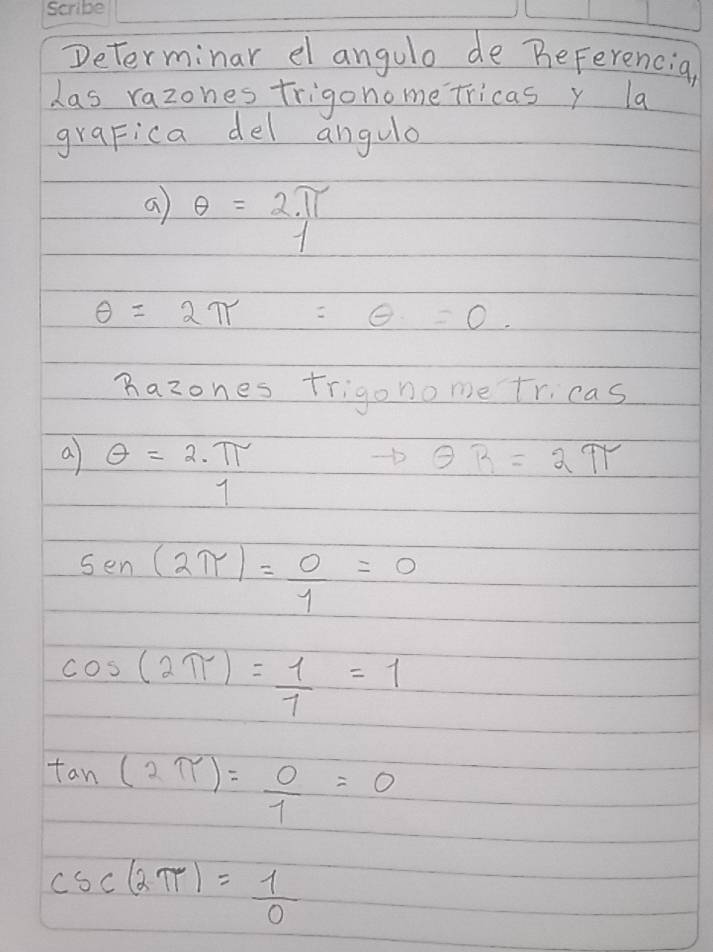 Scribe
Determinar el angulo de Referencia,
Las razones trigonometricas y la
grafica del angulo
a) θ = 2.π/1
θ = 2π = θ = 0.
Razones trigonometricas
a) θ = 2.π/1 → θR = 2π
Sen (2π) = 0/1 = 0
cos (2π) = 1/1 = 1
tan (2π) = 0/1 = 0
csc (2π) = 1/0